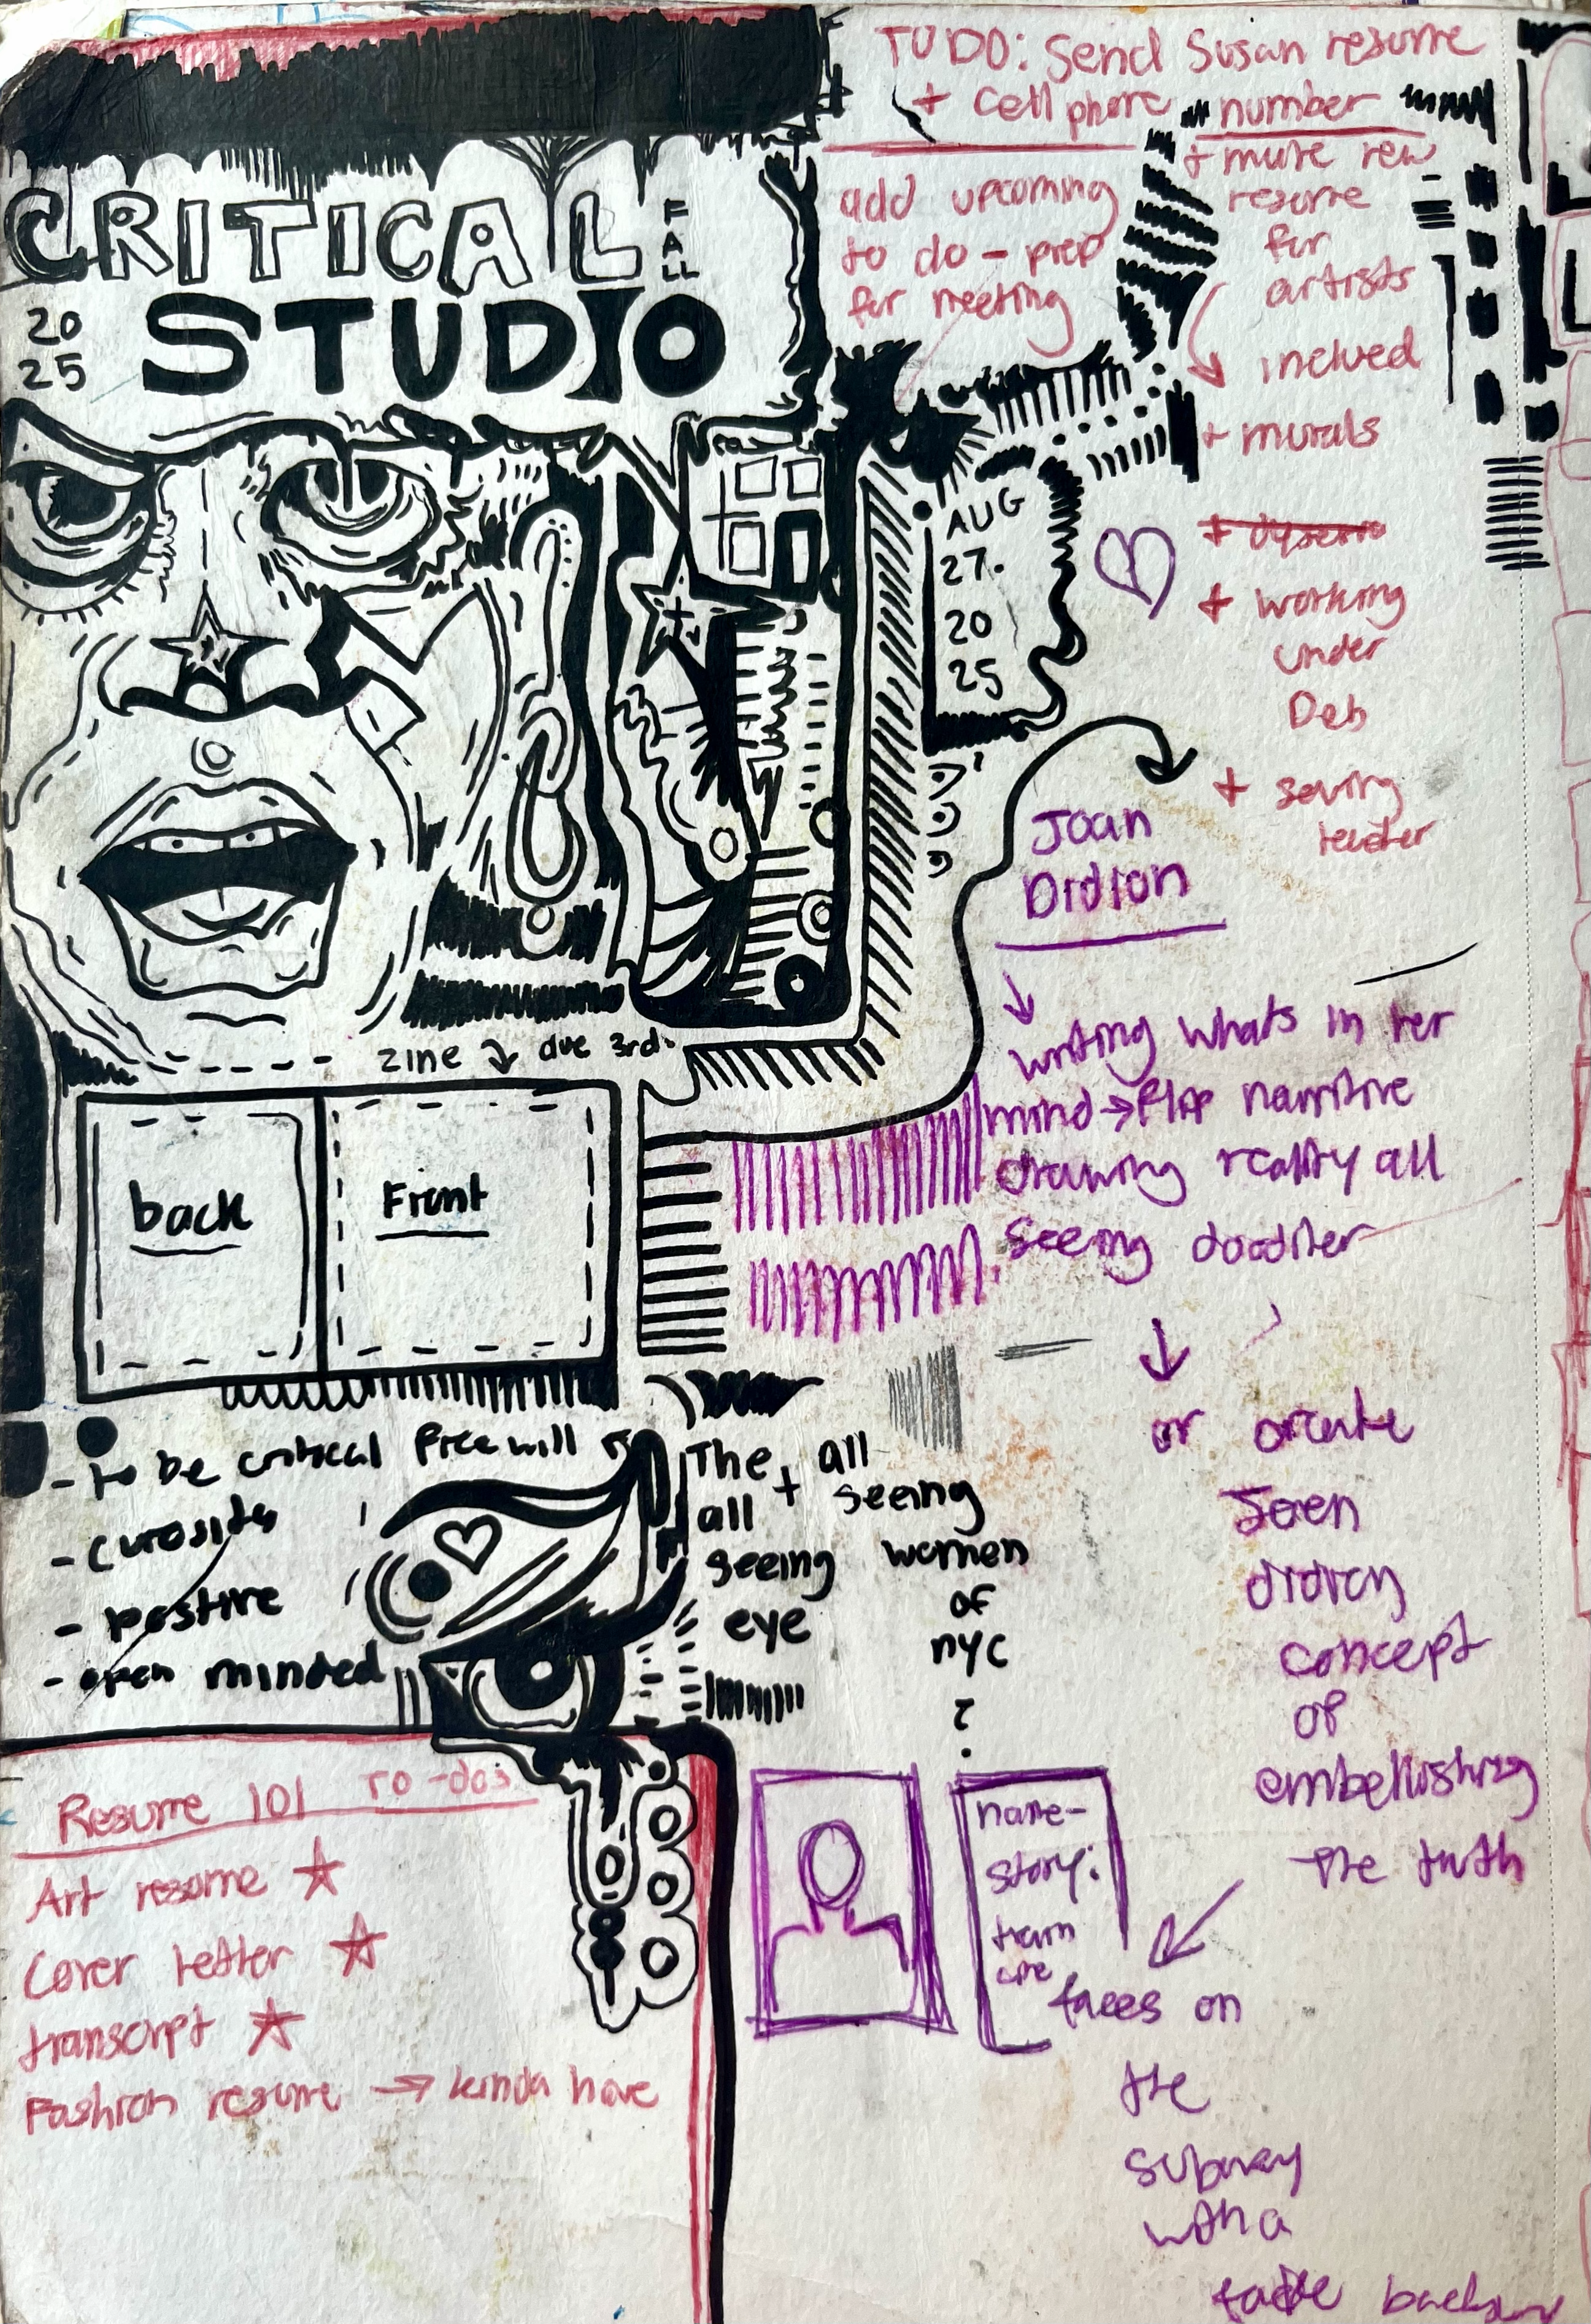 TUDO: Send Susan resume
+ cell phone number
add upcoming
to do - prep
for meeting
+ mure new
resume
for
artists
inclued
+ murals
+ working
under
Deb
+ sewing
CRITICAL
FALL
20
25
STUDIO
AUG
27.
20
25
Joan
Didion
writing whats in her
mind → flip narritive
drawing reality all
seeing doodler
or create
Joen
didion
concept
of
embellishing
the truth
faces on
the
subway
with a
zine due 3rd.
back
Front
- to be critical free will
- curosidty
- postive
- open minded
The + all
all seeing
seeing women
eye of
nyc
?
name-
story:
train
Resume 101 To-dos
Art resome
Cover letter
transcript
Fashion resume → kinda have